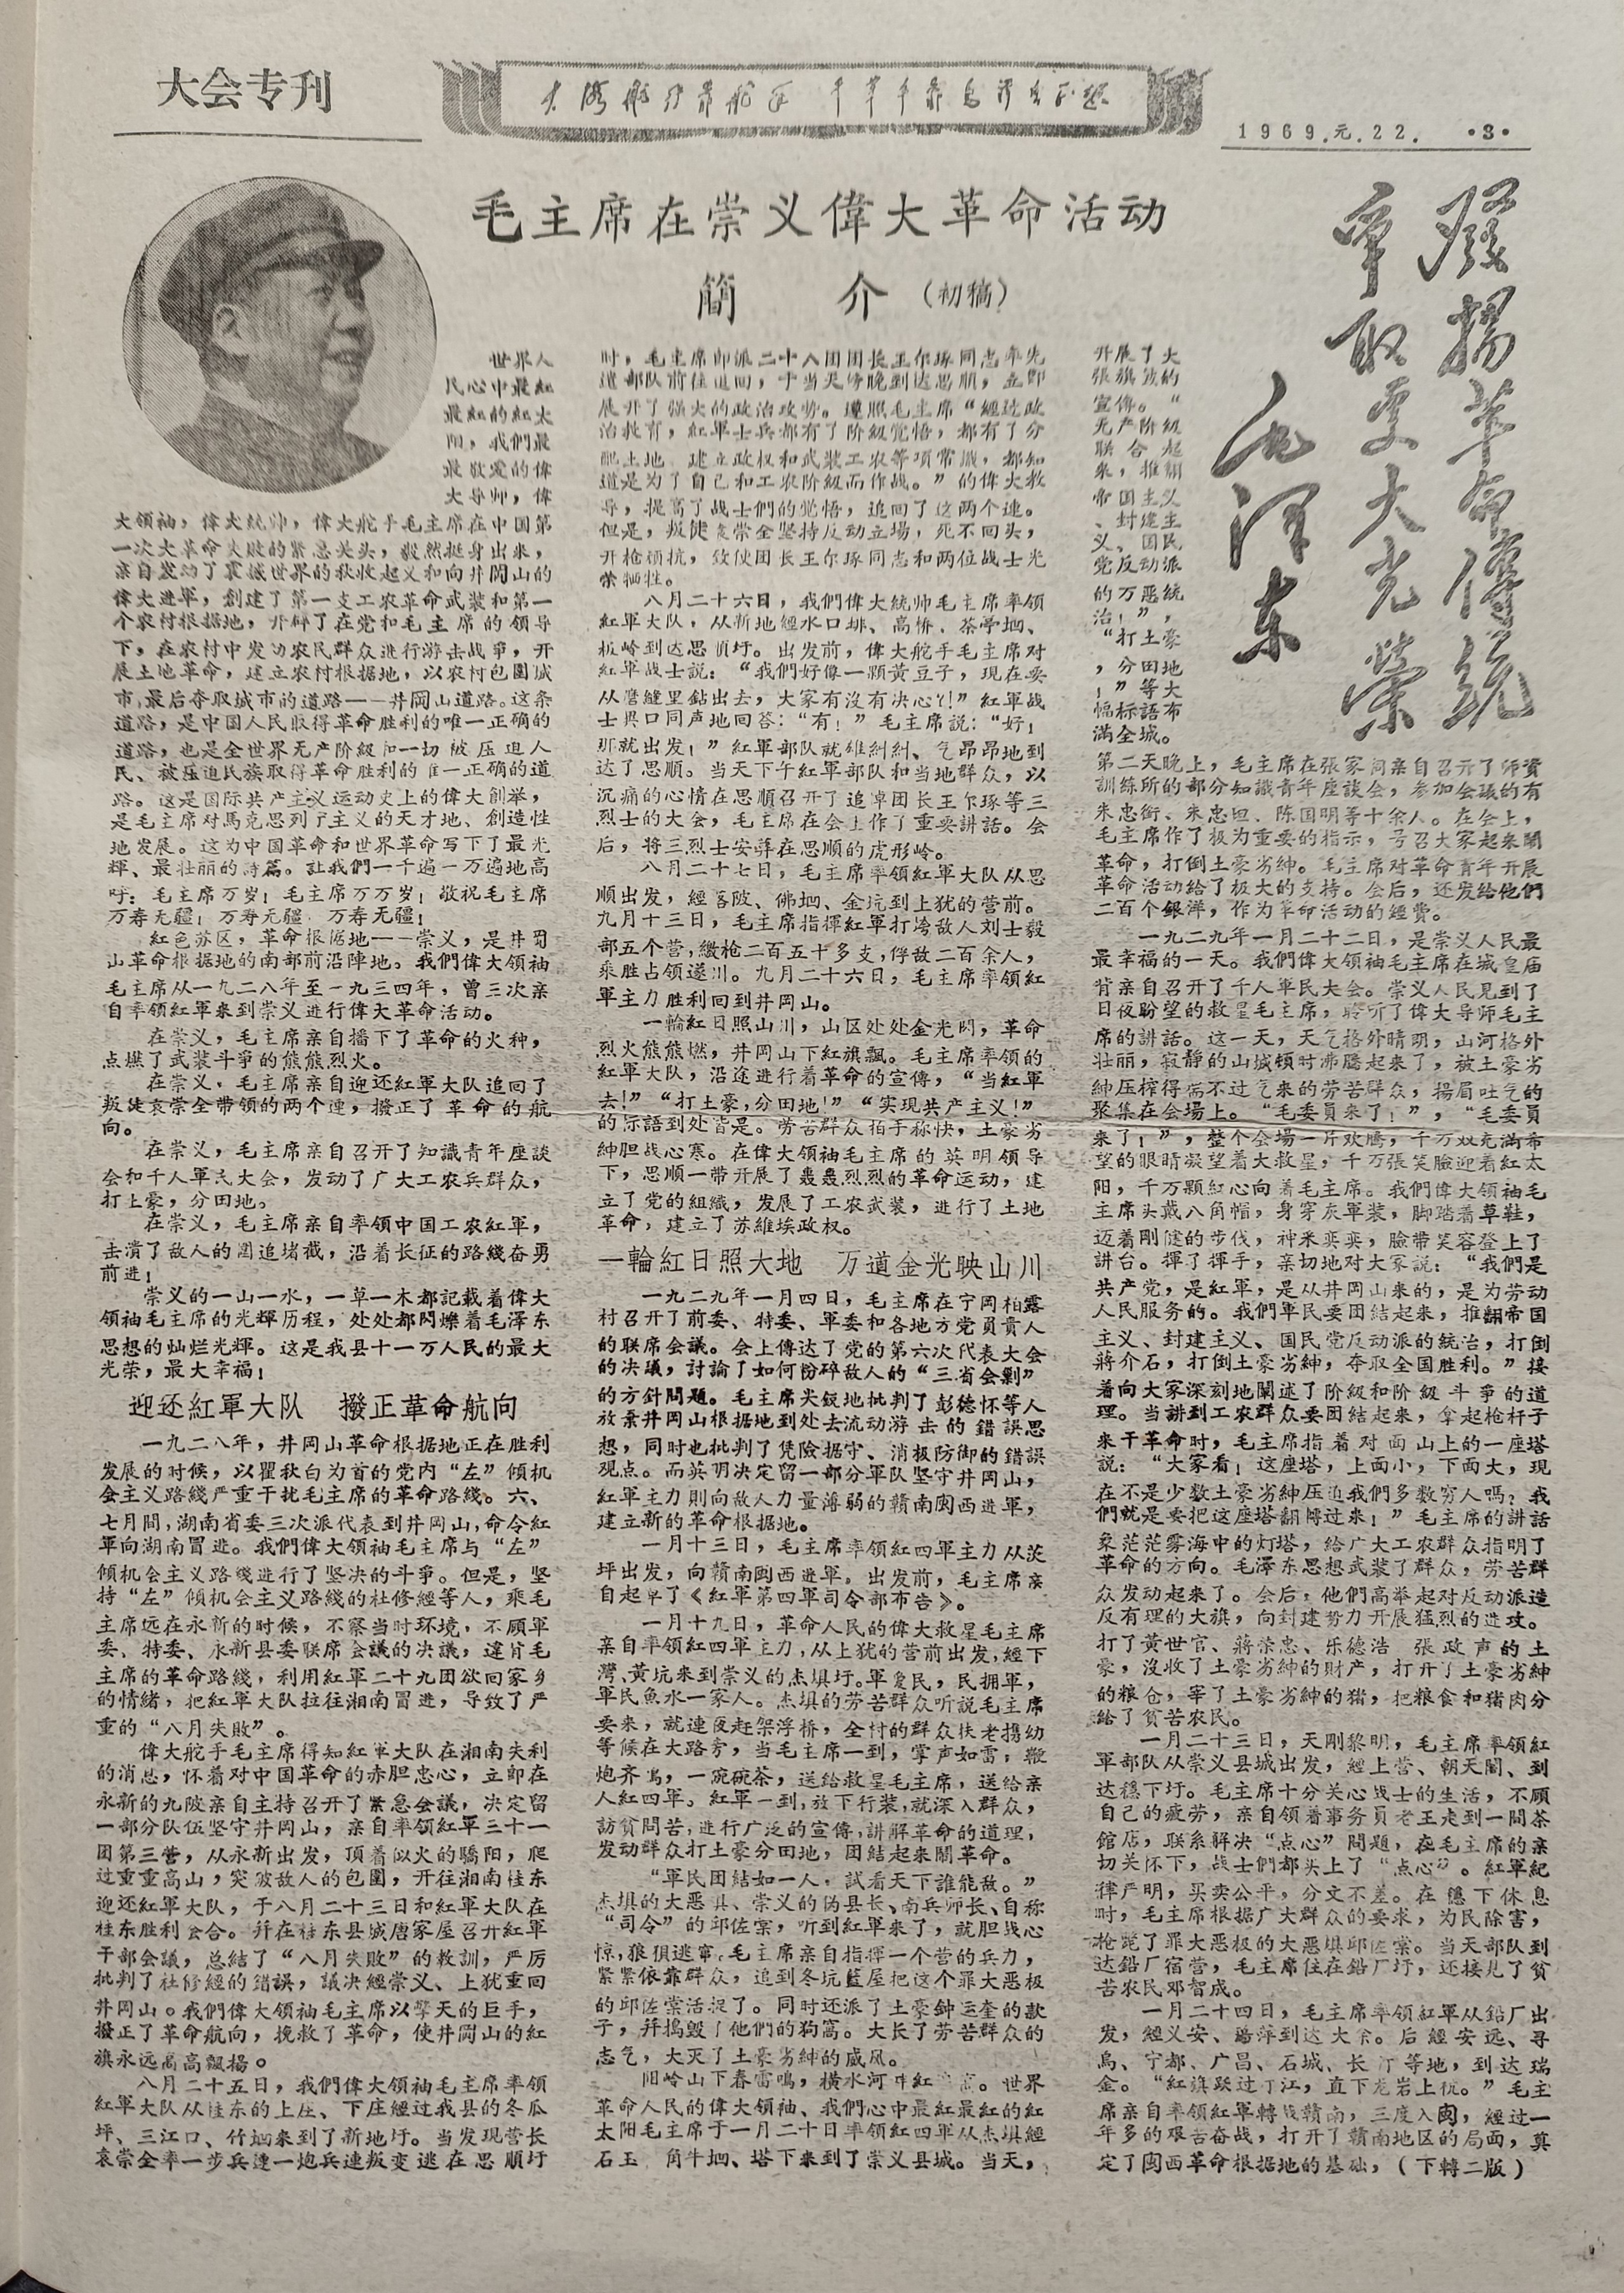 大会专刊
大海航行靠舵手 干革命靠毛泽东思想
1969.元.22. ·3·
毛主席在崇义偉大革命活动
簡 介（初稿）
發揚革命傳統
爭取更大光榮
毛泽东
世界人
民心中最紅
最紅的紅太
阳，我們最
最敬爱的偉
大导师，偉
大领袖，偉大統帅，偉大舵手毛主席在中国第
一次大革命失敗的紧急关头，毅然挺身出来，
亲自发动了震撼世界的秋收起义和向井岡山的
偉大进軍，創建了第一支工农革命武装和第一
个农村根据地，开辟了在党和毛主席的领导
下，在农村中发动农民群众进行游击战爭，开
展土地革命，建立农村根据地，以农村包圍城
市，最后夺取城市的道路——井岡山道路。这条
道路，是中国人民取得革命胜利的唯一正确的
道路，也是全世界无产阶級和一切被压迫人
民、被压迫民族取得革命胜利的唯一正确的道
路。这是国际共产主义运动史上的偉大創举，
是毛主席对馬克思列宁主义的天才地、創造性
地发展。这为中国革命和世界革命写下了最光
輝、最壮丽的詩篇。让我們一千遍一万遍地高
呼：毛主席万岁！毛主席万万岁！敬祝毛主席
万寿无疆！万寿无疆！万寿无疆！
紅色苏区，革命根据地——崇义，是井岡
山革命根据地的南部前沿陣地。我們偉大领袖
毛主席从一九二八年至一九三四年，曾三次亲
自率领紅軍来到崇义进行偉大革命活动。
在崇义，毛主席亲自播下了革命的火种，
点燃了武装斗爭的熊熊烈火。
在崇义，毛主席亲自迎还紅軍大队追回了
叛徒袁崇全带领的两个連，撥正了革命的航
向。
在崇义，毛主席亲自召开了知識青年座談
会和千人軍民大会，发动了广大工农兵群众，
打土豪，分田地。
在崇义，毛主席亲自率领中国工农紅軍，
击潰了敌人的圍追堵截，沿着长征的路綫奋勇
前进！
崇义的一山一水，一草一木都記載着偉大
领袖毛主席的光輝历程，处处都閃爍着毛澤东
思想的灿烂光輝。这是我县十一万人民的最大
光荣，最大幸福！
迎还紅軍大队 撥正革命航向
一九二八年，井岡山革命根据地正在胜利
发展的时候，以瞿秋白为首的党内“左”倾机
会主义路綫严重干扰毛主席的革命路綫。六、
七月間，湖南省委三次派代表到井岡山，命令紅
軍向湖南冒进。我們偉大领袖毛主席与“左”
倾机会主义路綫进行了坚决的斗爭。但是，坚
持“左”倾机会主义路綫的杜修經等人，乘毛
主席远在永新的时候，不察当时环境，不顾軍
委、特委、永新县委联席会議的决議，違背毛
主席的革命路綫，利用紅軍二十九团欲回家乡
的情緒，把紅軍大队拉往湘南冒进，导致了严
重的“八月失敗”。
偉大舵手毛主席得知紅軍大队在湘南失利
的消息，怀着对中国革命的赤胆忠心，立即在
永新的九陂亲自主持召开了紧急会議，决定留
一部分队伍坚守井岡山，亲自率领紅軍三十一
团第三营，从永新出发，頂着似火的驕阳，爬
过重重高山，突破敌人的包圍，开往湘南桂东
迎还紅軍大队，于八月二十三日和紅軍大队在
桂东胜利会合。幷在桂东县城唐家屋召开紅軍
干部会議，总結了“八月失敗”的教訓，严厉
批判了杜修經的錯誤，議决經崇义、上犹重回
井岡山。我們偉大领袖毛主席以擎天的巨手，
撥正了革命航向，挽救了革命，使井岡山的紅
旗永远高高飄揚。
八月二十五日，我們偉大领袖毛主席率领
紅軍大队从桂东的上庄、下庄經过我县的冬瓜
坪、三江口、竹垇来到了新地圩。当发现营长
袁崇全率一步兵連一炮兵連叛变逃在思順圩
时，毛主席即派二十八团团长王尔琢同志率先
遣部队前往追回，于当天傍晚到达思順，立即
展开了强大的政治攻势。遵照毛主席“經过政
治教育，紅軍士兵都有了阶級觉悟，都有了分
配土地、建立政权和武装工农等項常識，都知
道是为了自己和工农阶級而作战。”的偉大教
导，提高了战士們的觉悟，追回了这两个連。
但是，叛徒袁崇全坚持反动立場，死不回头，
开枪頑抗，致使团长王尔琢同志和两位战士光
荣牺牲。
八月二十六日，我們偉大統帅毛主席率领
紅軍大队，从新地經水口排、高桥、茶亭垇、
板岭到达思順圩。出发前，偉大舵手毛主席对
紅軍战士説：“我們好像一顆黄豆子，现在要
从磨縫里鉆出去，大家有沒有决心？！”紅軍战
士異口同声地回答：“有！”毛主席説：“好！
那就出发！”紅軍部队就雄糾糾、气昂昂地到
达了思順。当天下午紅軍部队和当地群众，以
沉痛的心情在思順召开了追悼团长王尔琢等三
烈士的大会，毛主席在会上作了重要讲話。会
后，将三烈士安葬在思順的虎形岭。
八月二十七日，毛主席率领紅軍大队从思
順出发，經客陂、佛垇、金坑到上犹的营前。
九月十三日，毛主席指揮紅軍打垮敌人刘士毅
部五个营，繳枪二百五十多支，俘敌二百余人，
乘胜占领遂川。九月二十六日，毛主席率领紅
軍主力胜利回到井岡山。
一輪紅日照山川，山区处处金光閃，革命
烈火熊熊燃，井岡山下紅旗飄。毛主席率领的
紅軍大队，沿途进行着革命的宣傳，“当紅軍
去！”“打土豪，分田地！”“实现共产主义！”
的标語到处皆是。劳苦群众拍手称快，土豪劣
紳胆战心寒。在偉大领袖毛主席的英明领导
下，思順一带开展了轰轰烈烈的革命运动，建
立了党的組織，发展了工农武装，进行了土地
革命，建立了苏維埃政权。
一輪紅日照大地 万道金光映山川
一九二九年一月四日，毛主席在宁岡柏露
村召开了前委、特委、軍委和各地方党員責人
的联席会議。会上傳达了党的第六次代表大会
的决議，討論了如何粉碎敌人的“三省会剿”
的方針問題。毛主席尖銳地批判了彭德怀等人
放棄井岡山根据地到处去流动游击的錯誤思
想，同时也批判了凭險据守、消极防御的錯誤
观点。而英明决定留一部分軍队坚守井岡山，
紅軍主力則向敌人力量薄弱的贛南閩西进軍，
建立新的革命根据地。
一月十三日，毛主席率领紅四軍主力从茨
坪出发，向贛南閩西进軍。出发前，毛主席亲
自起草了《紅軍第四軍司令部布告》。
一月十九日，革命人民的偉大救星毛主席
亲自率领紅四軍主力，从上犹的营前出发，經下
灣、黄坑来到崇义的杰埧圩。軍爱民，民拥軍，
軍民魚水一家人。杰埧的劳苦群众听説毛主席
要来，就連夜赶架浮桥，全村的群众扶老携幼
等候在大路旁，当毛主席一到，掌声如雷，鞭
炮齐鳴，一碗碗茶，送給救星毛主席，送給亲
人紅四軍。紅軍一到，放下行装，就深入群众，
訪貧問苦，进行广泛的宣傳，讲解革命的道理，
发动群众打土豪分田地，团結起来鬧革命。
“軍民团結如一人，試看天下誰能敌。”
杰埧的大恶埧、崇义的伪县长、南兵师长、自称
“司令”的邱佐寀，听到紅軍来了，就胆战心
惊，狼狽逃窜。毛主席亲自指揮一个营的兵力，
紧紧依靠群众，追到冬坑藍屋把这个罪大恶极
的邱佐崇活捉了。同时还派了土豪钟运奎的款
子，幷搗毁了他們的狗窩。大长了劳苦群众的
志气，大灭了土豪劣紳的威风。
阳岭山下春雷鳴，横水河中紅 高。世界
革命人民的偉大领袖、我們心中最紅最紅的紅
太阳毛主席于一月二十日率领紅四軍从杰埧經
石玉、角牛垇、塔下来到了崇义县城。当天，
开展了大
张旗鼓的
宣傳。“
无产阶級
联合起
来，推翻
帝国主义
、封建主
义、国民
党反动派
的万恶統
治！”，
“打土豪
，分田地
！”等大
幅标語布
满全城。
第二天晚上，毛主席在張家祠亲自召开了师資
訓練所的部分知識青年座談会，参加会議的有
朱忠銜、朱忠坦、陈国明等十余人。在会上，
毛主席作了极为重要的指示，号召大家起来鬧
革命，打倒土豪劣紳。毛主席对革命青年开展
革命活动給了极大的支持。会后，还发給他們
二百个銀洋，作为革命活动的經費。
一九二九年一月二十二日，是崇义人民最
最幸福的一天。我們偉大领袖毛主席在城皇庙
背亲自召开了千人軍民大会。崇义人民见到了
日夜盼望的救星毛主席，聆听了偉大导师毛主
席的讲話。这一天，天气格外晴明，山河格外
壮丽，寂静的山城頓时沸騰起来了，被土豪劣
紳压榨得喘不过气来的劳苦群众，揚眉吐气的
聚集在会場上。“毛委員来了！”，“毛委員
来了！”，整个会場一片欢騰，千万双充满希
望的眼睛凝望着大救星，千万張笑臉迎着紅太
阳，千万顆紅心向着毛主席。我們偉大领袖毛
主席头戴八角帽，身穿灰軍装，脚踏着草鞋，
迈着刚健的步伐，神采奕奕，臉带笑容登上了
讲台。揮了揮手，亲切地对大家説：“我們是
共产党，是紅軍，是从井岡山来的，是为劳动
人民服务的。我們軍民要团結起来，推翻帝国
主义、封建主义、国民党反动派的統治，打倒
蔣介石，打倒土豪劣紳，夺取全国胜利。”接
着向大家深刻地闡述了阶級和阶級斗爭的道
理。当讲到工农群众要团結起来，拿起枪杆子
来干革命时，毛主席指着对面山上的一座塔
説：“大家看！这座塔，上面小，下面大，现
在不是少数土豪劣紳压迫我們多数穷人嗎？我
們就是要把这座塔翻轉过来！”毛主席的讲話
象茫茫雾海中的灯塔，給广大工农群众指明了
革命的方向。毛澤东思想武装了群众，劳苦群
众发动起来了。会后，他們高举起对反动派造
反有理的大旗，向封建势力开展猛烈的进攻。
打了黄世官、蔣荣忠、乐德浩、張政声的土
豪，沒收了土豪劣紳的財产，打开了土豪劣紳
的粮仓，宰了土豪劣紳的猪，把粮食和猪肉分
給了貧苦农民。
一月二十三日，天刚黎明，毛主席率领紅
軍部队从崇义县城出发，經上营、朝天閣、到
达穩下圩。毛主席十分关心战士的生活，不顾
自己的疲劳，亲自领着事务員老王走到一間茶
館店，联系解决“点心”問題，在毛主席的亲
切关怀下，战士們都头上了“点心”。紅軍紀
律严明，买卖公平，分文不差。在穩下休息
时，毛主席根据广大群众的要求，为民除害，
枪毙了罪大恶极的大恶埧邱佐寀。当天部队到
达鉛厂宿营，毛主席住在鉛厂圩，还接见了貧
苦农民邓智成。
一月二十四日，毛主席率领紅軍从鉛厂出
发，經义安、 萍到达大余。后經安远、寻
烏、宁都、广昌、石城、长汀等地，到达瑞
金。“紅旗跃过汀江，直下龙岩上杭。”毛主
席亲自率领紅軍轉战贛南，三度入閩，經过一
年多的艰苦奋战，打开了贛南地区的局面，奠
定了閩西革命根据地的基础，（下轉二版）